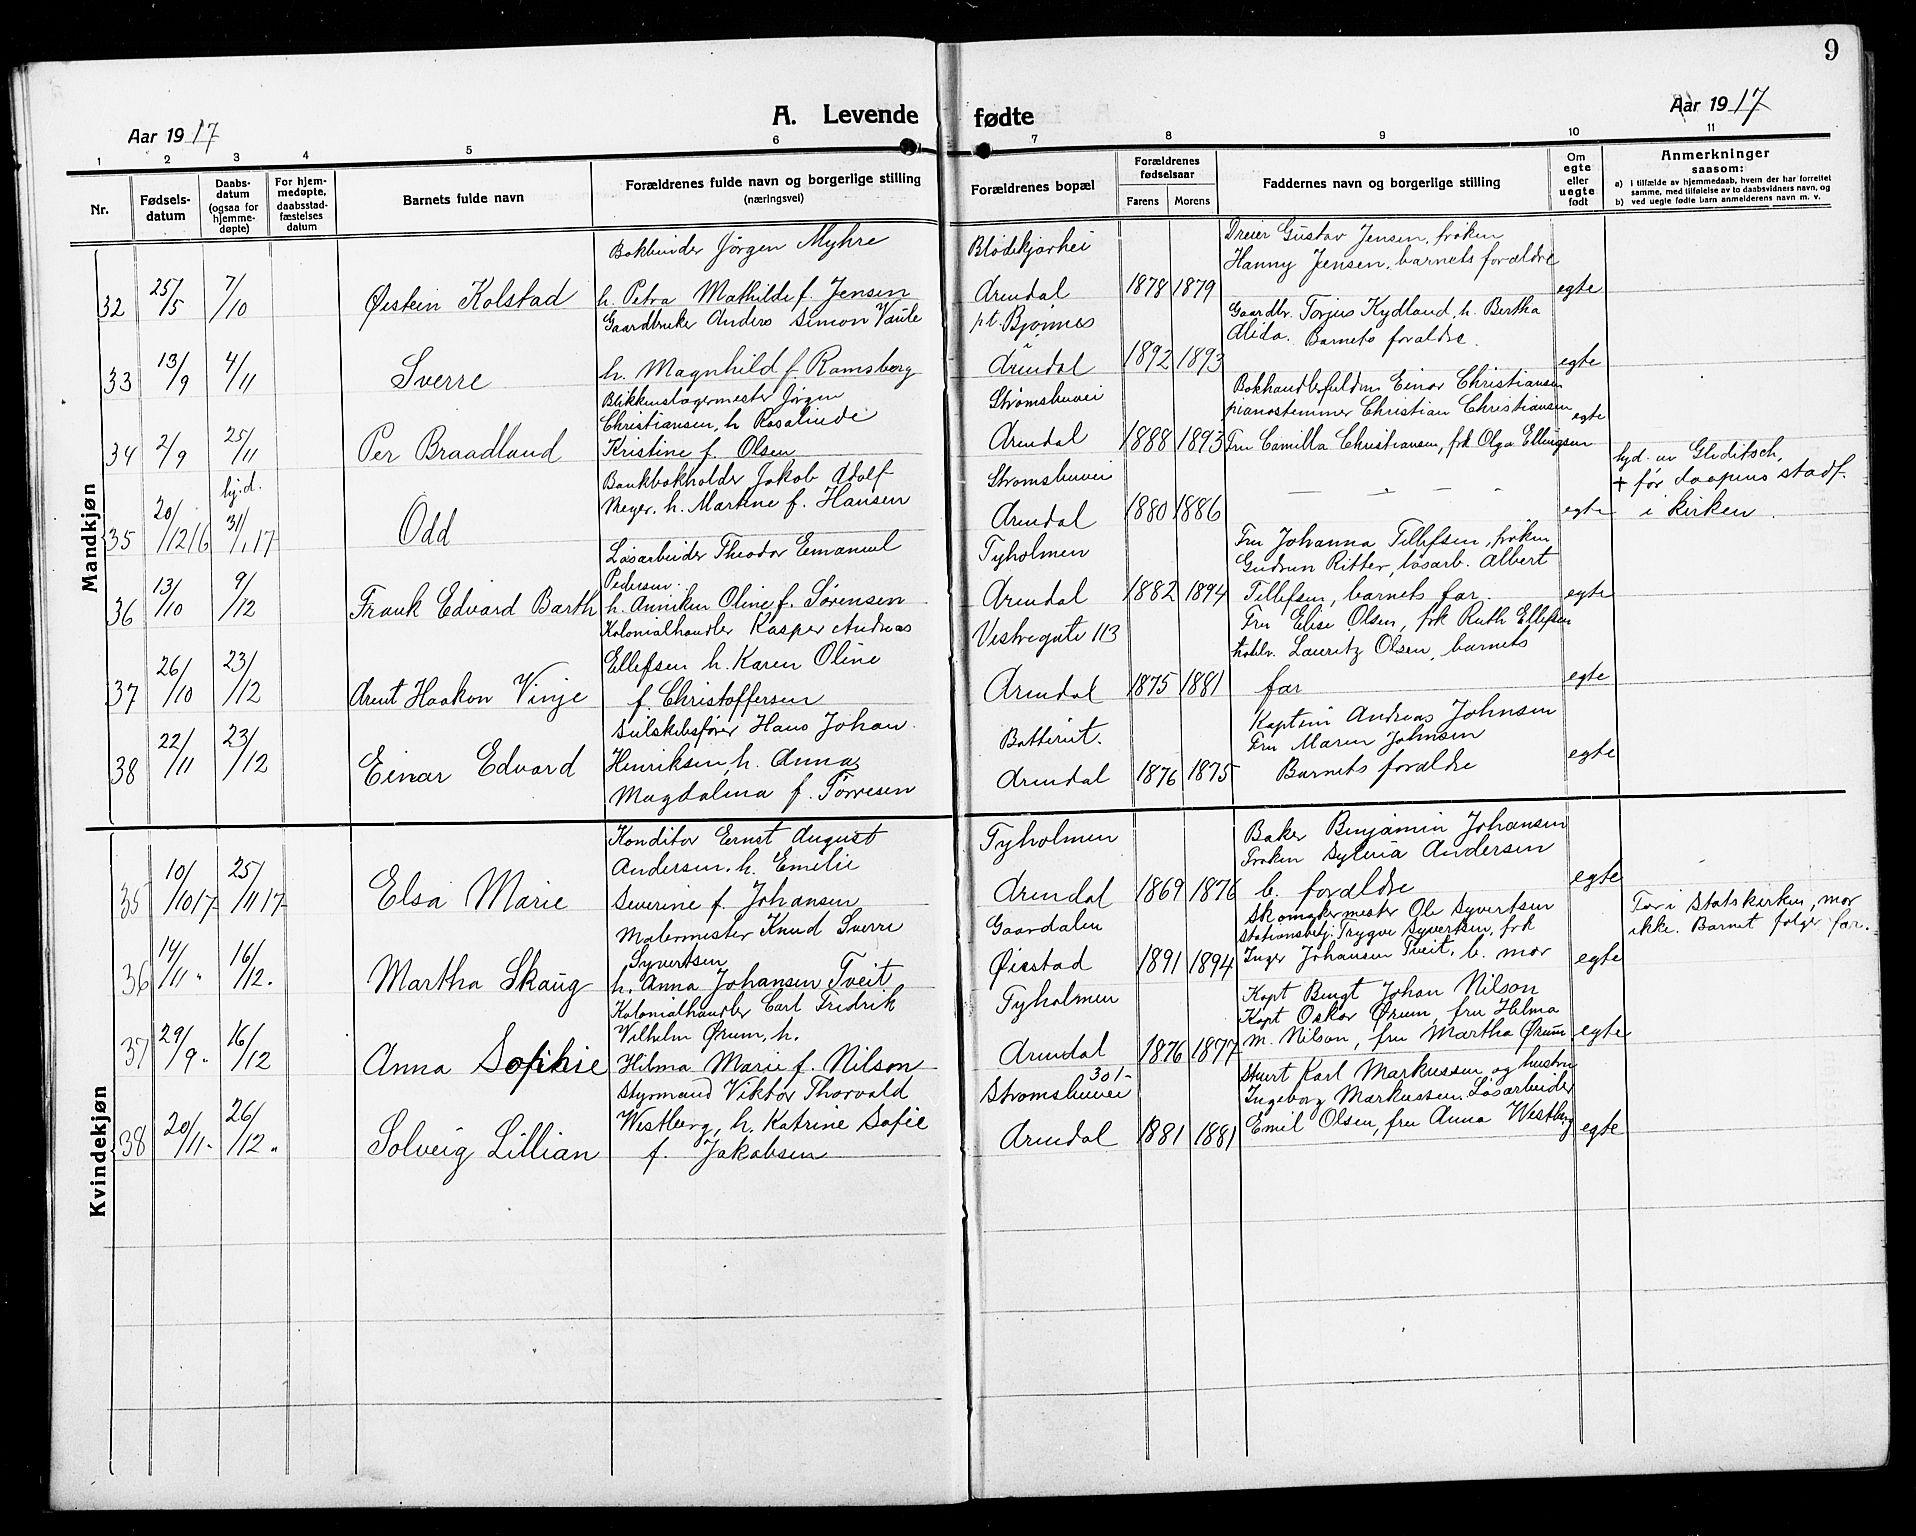 9
A. Levende fødte
Aar 1917
Aar 1917
1 2 3 4 5 6 7 8 9 10 11
Nr.
Fødsels-
datum
Daabs-
datum
(ogsaa for
hjemme-
døpte)
For hjem-
medøpte,
daabsstad-
fæstelses
datum
Barnets fulde navn
Forældrenes fulde navn og borgerlige stilling
(næringsvei)
Forældrenes bopæl
Forældrenes
fødselsaar
Farens Morens
Faddernes navn og borgerlige stilling
Om
egte
eller
uegte
født
Anmerkninger
saasom:
a) i tilfælde av hjemmedaab, hvem der har forrettet
samme, med tilføielse av to daabsvidners navn, og
b) ved uegte fødte barn anmelderens navn m. v.
Mandkjøn
32 25/5 7/10 Øistein Kolstad
Bokbinder Jørgen Myhre
h. Petra Mathilde f. Jensen
Blødekjørhei
Arendal 1878 1879
Dreier Gustav Jensen, frøken
Hanny Jensen, barnets forældre
egte
33 13/9 4/11 Sverre
Gaardbruker Anders Simon Vaule
h. Magnhild f. Ramsborg
pt. Bjønnes
Arendal 1892 1893
Gaardbr. Torjus Kydland, h. Bertha
Alida. Barnets forældre.
egte
34 2/9 25/11 Per Braadland
Blikkenslagermester Jørgen
Christiansen, h. Rosalinde
Kristine f. Olsen
Strømsbuvei
Arendal 1888 1893
Bokhandlerfuldm Einar Christiansen
pianostemmer Christian Christiansen
Fru Camilla Christiansen, frk Olga Ellingsen
egte
35 20/12 16 hj.d. 31/1 17 Odd
Bankbokholder Jakob Adolf
Meyer, h. Martine f. Hansen
Strømsbuvei
Arendal 1880 1886
— - - -
egte
hjd. av Gliditsch,
+ før daapens stadf.
i kirken.
36 13/10 9/12 Frank Edvard Barth
Løsarbeider Theodor Emanuel
Pedersen.
h. Anniken Oline f. Sørensen
Tyholmen
Arendal 1882 1894
Fru Johanna Tellefsen, frøken
Gudrun Ritter, løsarb. Albert
Tellefsen, barnets far.
egte
37 26/10 23/12 Arent Haakon Vinje
Kolonialhandler Kasper Andreas
Ellefsen h. Karen Oline
f. Christoffersen
Vestregate 113
Arendal 1875 1881
Fru Elise Olsen, frk Ruth Ellefsen
Lauritz Olsen, barnets
far
egte
38 22/11 23/12 Einar Edvard
Seilskibsfører Hans Johan
Henriksen, h. Anna
Magdalena f. Tørresen
Batteriet.
Arendal 1876 1875
Kaptein Andreas Johnsen
Fru Maren Johnsen
Barnets forældre
egte
Kvindekjøn
35 10/10 17 25/11 17 Elsa Marie
Konditor Ernst August
Andersen, h. Emelie
Severine f. Johansen
Tyholmen
Arendal 1869 1876
Baker Benjamin Johansen
Frøken Sylvia Andersen
b. forældre
egte
36 14/11 16/12. Martha Skaug
Malermester Knud Sverre
Syvertsen
h. Anna Johansen Tveit
Gaardalen
Øiestad 1891 1894
Skomakermester Ole Syvertsen
Stationsbetj. Trygve Syvertsen, frk
Inger Johansen Tveit, b. mor
egte
Far i Statskirken, mor
ikke. Barnet følger far.
37 29/9 16/12 Anna Sofie
Kolonialhandler Carl Fredrik
Wilhelm Ørum, h.
Hilma Marie f. Nilson
Tyholmen
Arendal 1876 1877
Kapt Bengt Johan Nilson
Kapt Oskar Ørum, fru Hilma
M. Nilson, fru Martha Ørum
egte
38 20/11 26/12 Solveig Lillian
Styrmand Viktor Thorvald
Westberg, h. Katrine Sofie
f. Jakobsen
301-
Strømsbuvei
Arendal 1881 1881
Stuert Karl Markussen og hustru
Ingeborg Markussen. Løsarbeider
Emil Olsen, fru Anna Westberg
egte